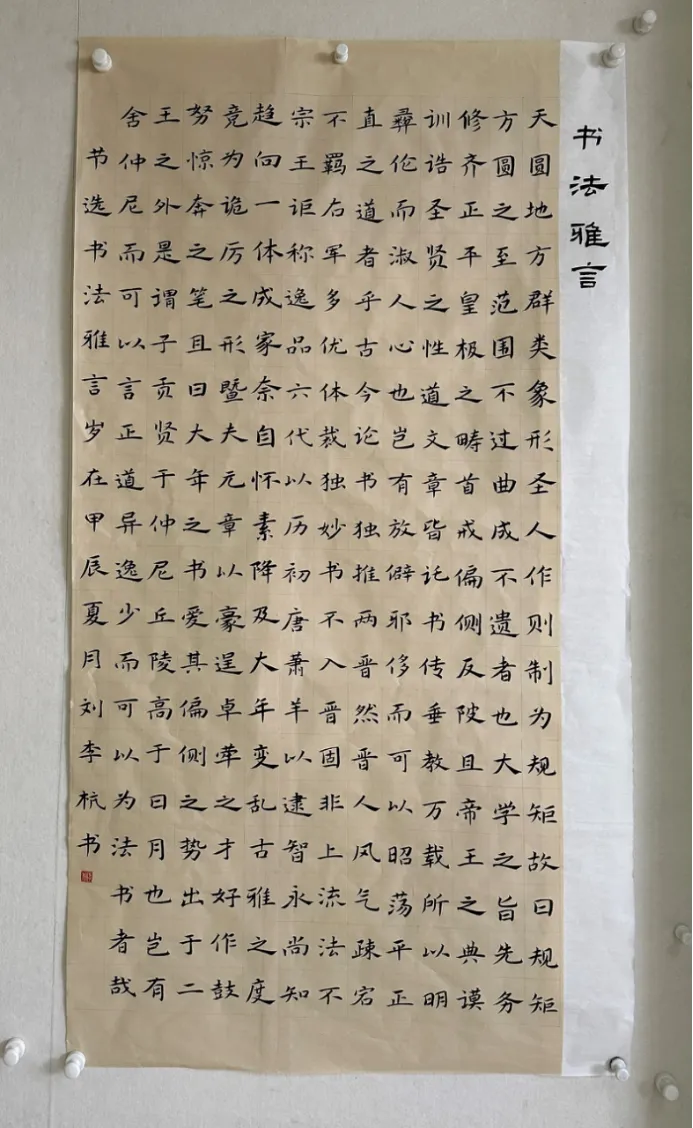 书法雅言
天圆地方群类象形圣人作则制为规矩故曰规矩
方圆之至范围不过曲成不遗者也大学之旨先务
修齐正平皇极之畴首戒偏侧反陂且帝王之典谟
训诰圣贤之性道文章皆讬书传垂教万载所以明
彝伦而淑人心也岂有放僻耶侈而可以昭荡平正
直之道者乎古今论书独推两晋然晋人风气疎宕
不羁右军多优体裁独妙书不入晋固非上流法不
宗王讵称逸品六代以历初唐萧羊以逮智永尚知
趋向一体成家奈自怀素降及大年变乱古雅之度
竞为诡厉之形暨夫元章以豪逞卓荦之才好作鼓
努惊奔之笔且曰大年之书爱其偏侧之势出于二
王之外是谓子贡贤于仲尼丘陵高于日月也岂有
舍仲尼而可以言正道异逸少而可以为法书者哉
节选书法雅言岁在甲辰夏月刘李杭书